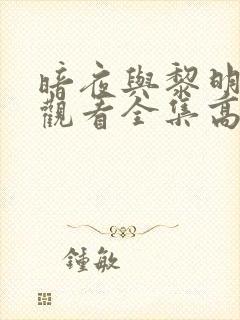 暗夜與黎明
觀看全集高
鍾敏